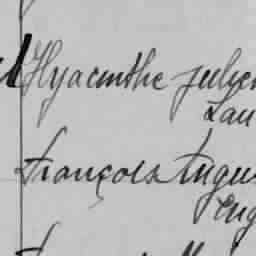 Hyacinthe Julien
Lau
François Augus
Eug